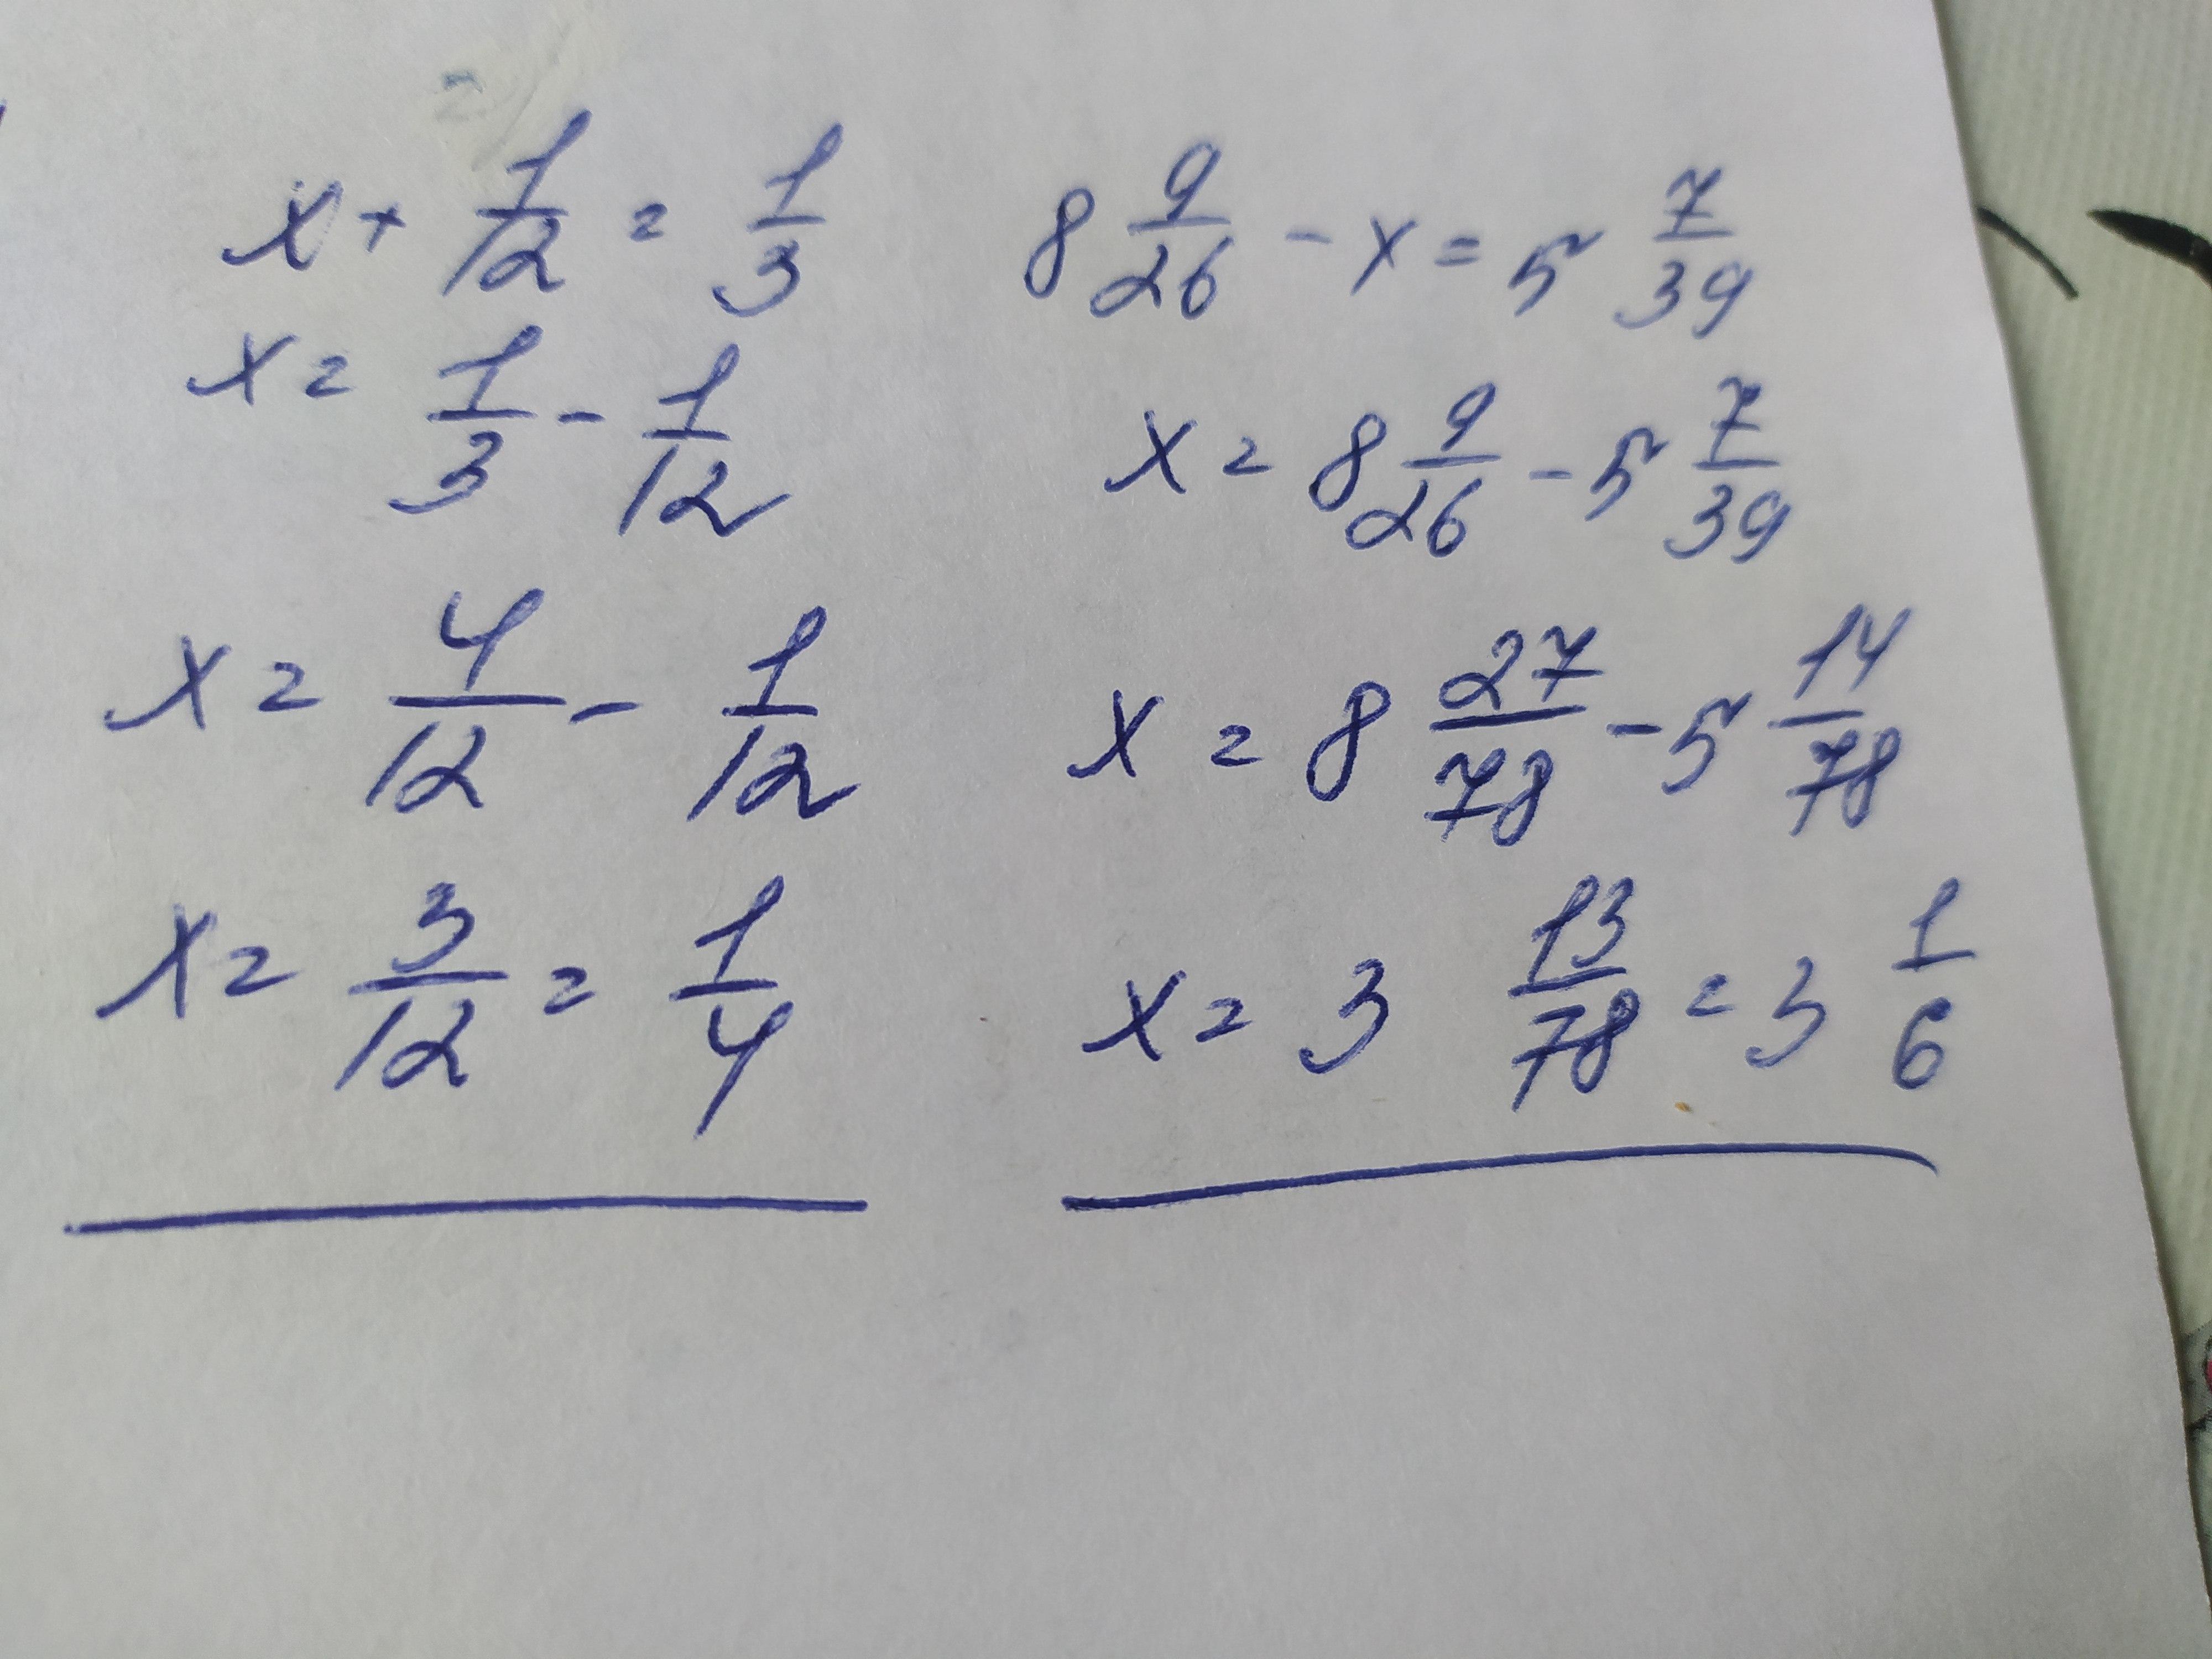 x + 1/12 = 1/3
x = 1/3 - 1/12
x = 4/12 - 1/12
x = 3/12 = 1/4
8 9/26 - x = 5 7/39
x = 8 9/26 - 5 7/39
x = 8 27/78 - 5 14/78
x = 3 13/78 = 3 1/6